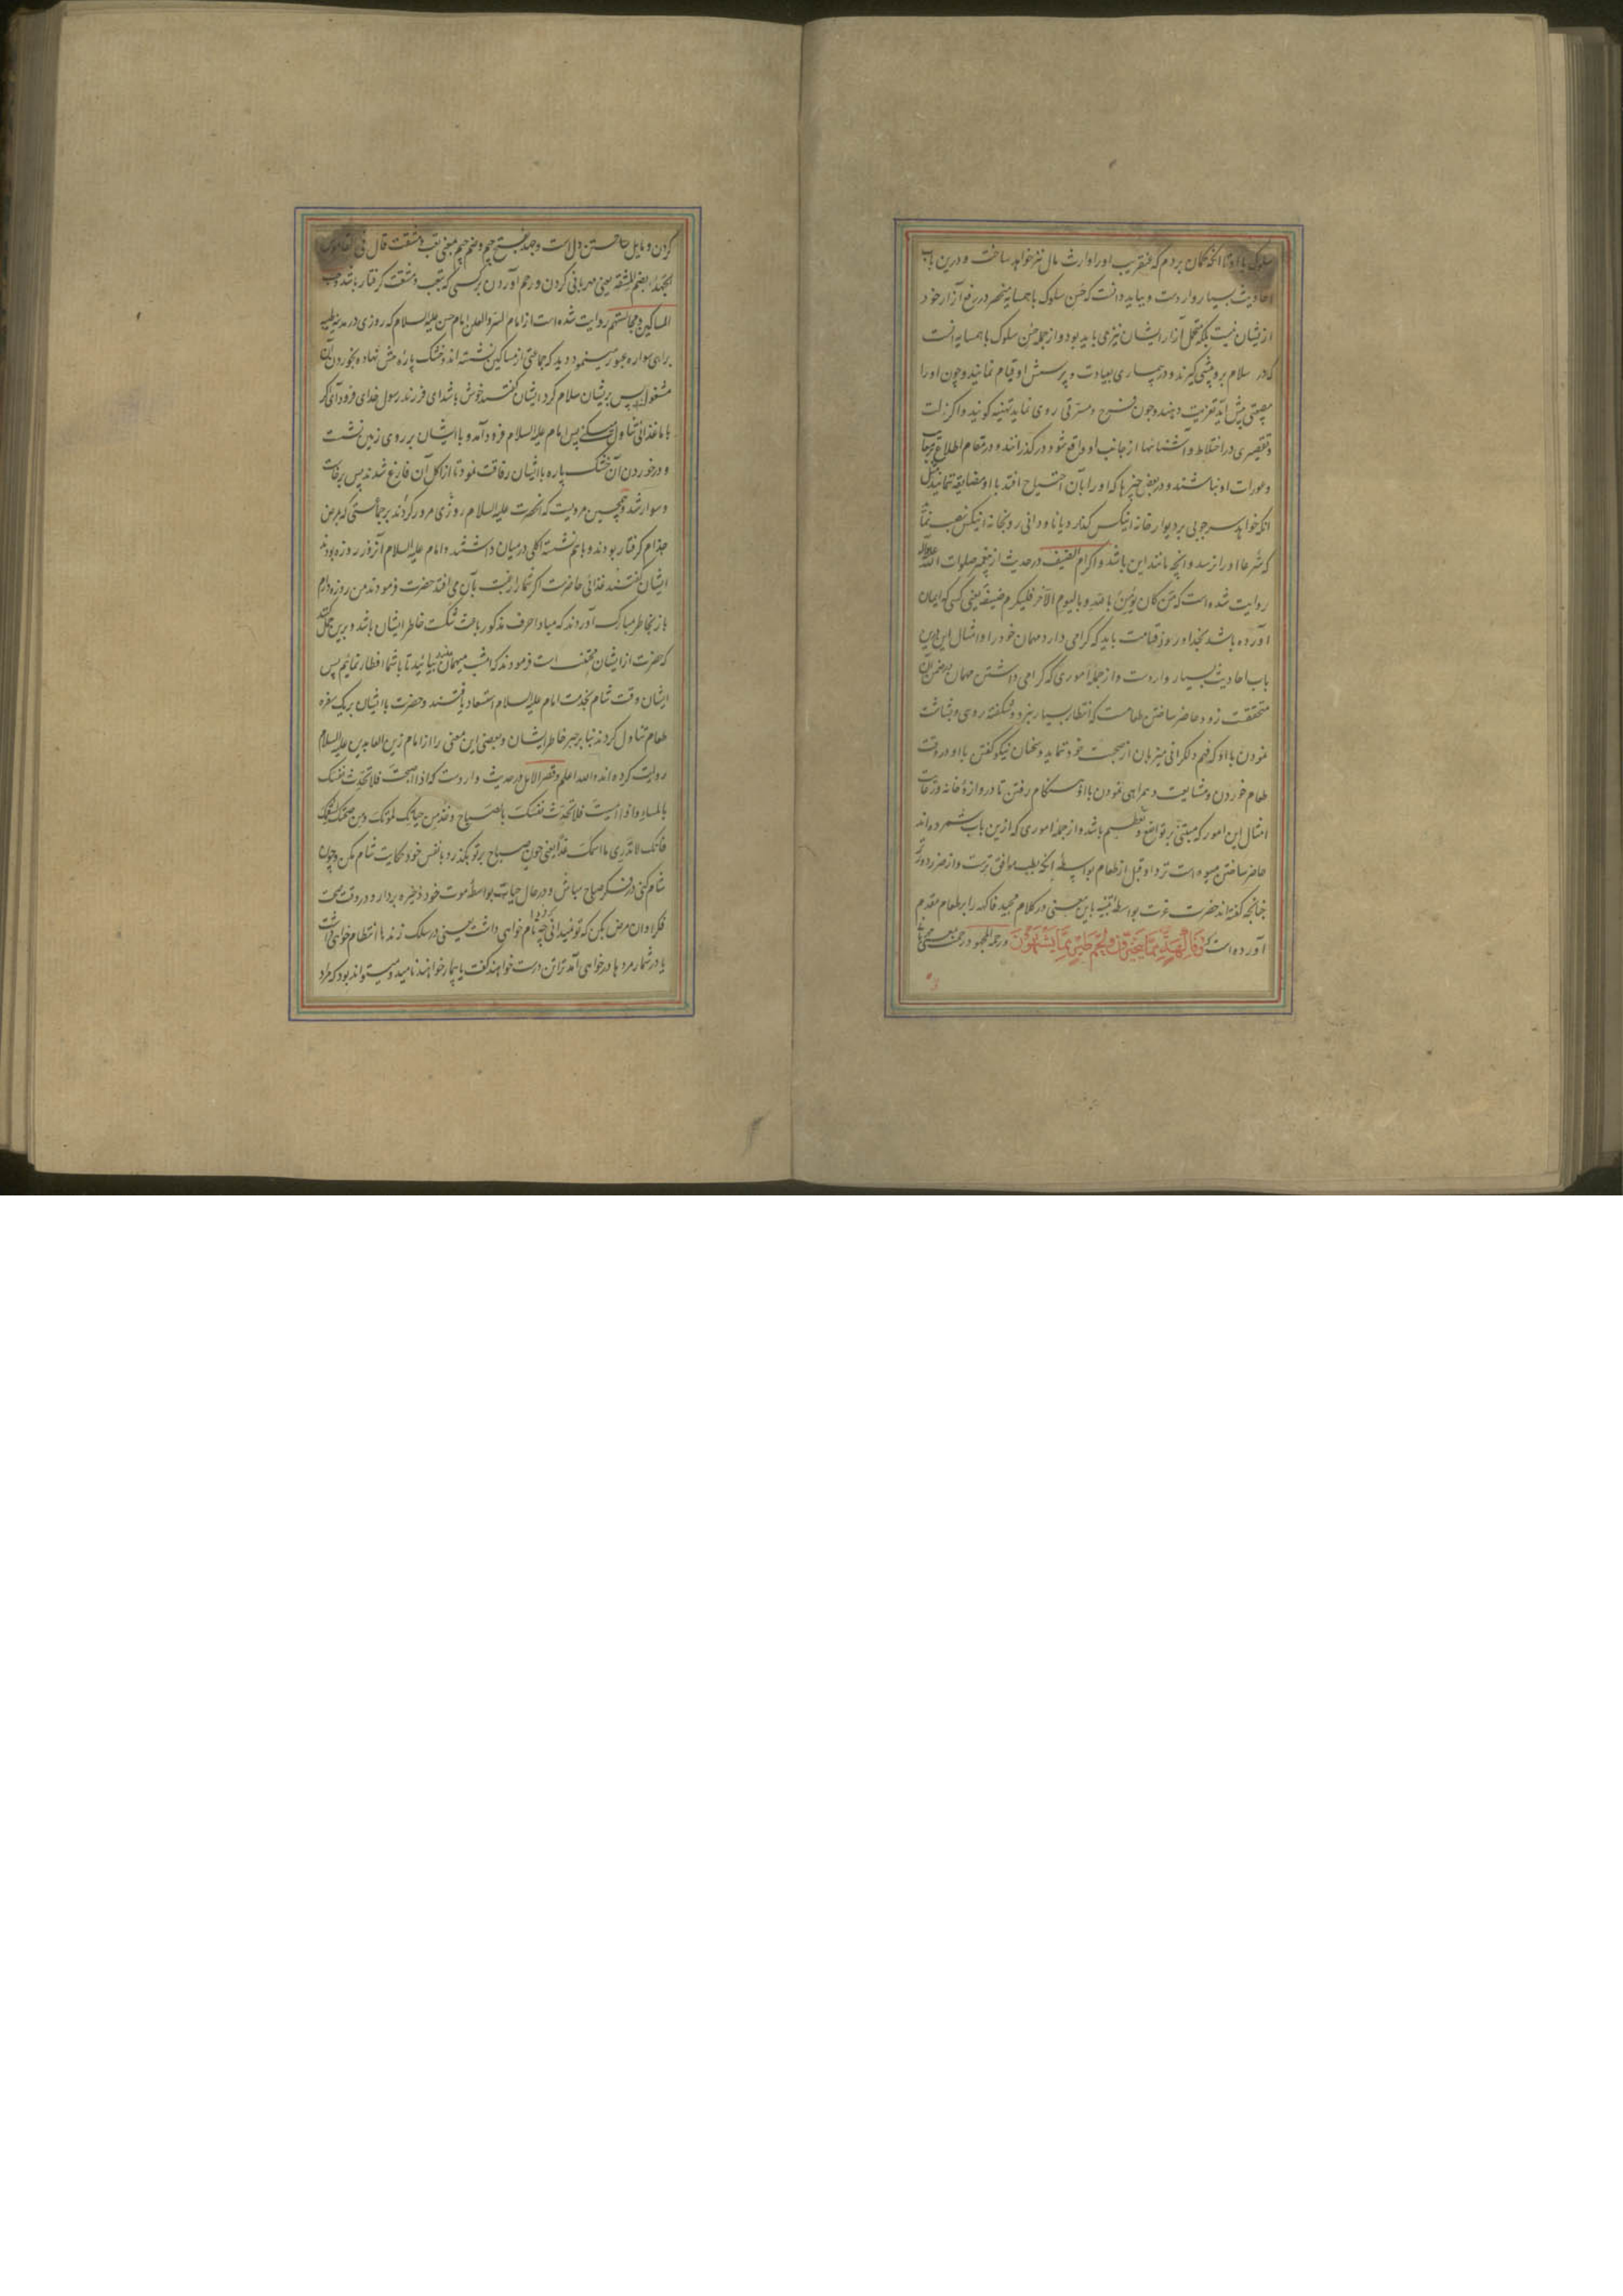 سلوک با او تا آنکه گمان بردم که عنقریب او را وارث مال نیز خواهد ساخت و درین باب
احادیث بسیار واردست و بباید دانست که حسن سلوک با همسایه منحصر در رفع آزار خود
از ایشان نیست بلکه تحمل آزار ایشان نیز می باید بود و از جمله حسن سلوک با همسایه آنست
که در سلام برو پیشی گیرند و در بیماری بعیادت و پرسش او قیام نمایند و چون او را
مصیبتی پیش آید تعزیت دهند و چون فرح و مسرتی روی نماید تهنیه گویند و اگر زلت
و تقصیری در اختلاط و آشنائیها از جانب او واقع شود درگذرانند و در مقام اطلاع بر معایب
و عورات او نباشند و در بعضی چیزها که او را بآن احتیاج افتد با او مضایقه ننمایند مثل
آنکه خواهد سر چوبی بر دیوار خانه اینکس گذارد یا ناودانی رو بخانه اینکس نصب نماید
که شرعا او را نرسد و آنچه مانند این باشد و اکرام الضیف در حدیث از پیغمبر صلوات الله علیه و آله
روایت شده است که من کان یؤمن بالله و بالیوم الآخر فلیکرم ضیفه یعنی کسی که ایمان
آورده باشد بخدا و روز قیامت باید که گرامی دارد مهمان خود را و امثال این درین
باب احادیث بسیار واردست و از جمله اموری که گرامی داشتن مهمان در ضمن آن
متحققست زود حاضر ساختن طعامست که انتظار بسیار نبرد و شکفته روی و بشاشت
نمودن با او که فهم دلگرانی میزبان از صحبت خود ننماید و سخنان نیکو گفتن با او در وقت
طعام خوردن و مشایعت و همراهی نمودن با او هنگام رفتن تا دروازه خانه و رعایت
امثال این امور که مبتنی بر تواضع و تعظیم باشد و از جمله اموری که ازین باب شمرده اند
حاضر ساختن میوه است نزد او قبل از طعام بواسطه آنکه بطب موافق ترست و از ضرر دورتر
چنانچه گفته اند حضرت عزت بواسطه تنبیه باین معنی در کلام مجید فاکهه را بر طعام مقدم
آورده است که وَفَاكِهَةٍ مِمَّا يَتَخَيَّرُونَ وَلَحْمِ طَيْرٍ مِمَّا يَشْتَهُونَ و رحمة المجهود رحمت بمعنی
کردن و مایل ساختن دل است و جهد بفتح جیم و ضم جیم بمعنی تعب و مشقت قال فی القاموس
الجهد بضم المشقة یعنی مهربانی کردن و رحم آوردن بر کسی که بتعب و مشقت گرفتار باشد و حب
المساکین و مجالستهم روایت شده است از امام السر و العلن امام حسن علیه السلام که روزی در مدینه طیبه
براهی سواره عبور مینمود دید که جماعتی از مساکین نشسته اند و خشک پاره پیش نهاده بخوردن آن
مشغول پس بریشان سلام کرد ایشان گفتند خوش باشد ای فرزند رسول خدای فرود آی که
با ما غذائی تناول کنی پس امام علیه السلام فرود آمد و با ایشان بر روی زمین نشست
و در خوردن آن خشک پاره با ایشان رفاقت نمود تا از اکل آن فارغ شدند پس برخاست
و سوار شد و همچنین مرویست که آنحضرت علیه السلام روزی مرور کردند بر جماعتی که بمرض
جذام گرفتار بودند و با هم نشسته اکلی در میان داشتند و امام علیه السلام آنروز روزه بودند
ایشان گفتند غذائی حاضرست اگر شما را رغبت بآن می افتد حضرت فرمودند من روزه دارم
باز بخاطر مبارک آوردند که مبادا حرف مذکور باعث شکست خاطر ایشان باشد و برین حمل کنند
که حضرت از ایشان مجتنب است فرمودند که امشب میهمان من بیائید تا با شما افطار نمائیم پس
ایشان وقت شام بخدمت امام علیه السلام استسعاد یافتند و حضرت با ایشان بر یک سفره
طعام تناول کردند بنا بر جبر خاطر ایشان و بعضی این معنی را از امام زین العابدین علیه السلام
روایت کرده اند و الله اعلم و قصر الامل در حدیث واردست که اذا اصبحت فلا تحدث نفسک
بالمساء و اذا امسیت فلا تحدث نفسک بالصباح و خذ من حیاتک لموتک و من صحتک لسقمک
فانک لا تدری ما اسمک غدا یعنی چون صباح بر تو بگذرد با نفس خود حکایت شام مکن و چون
شام کنی در فکر صباح مباش و در حال حیات بواسطه موت خود ذخیره بردار و در وقت صحت
فکر اوان مرض بکن که تو نمیدانی فردا چه نام خواهی داشت یعنی در سلک زنده ها انتظام خواهی داشت
یا در شمار مرده ها درخواهی آمد ترا تن درست خواهند گفت یا بیمار خواهند نامید و میتواند بود که مراد